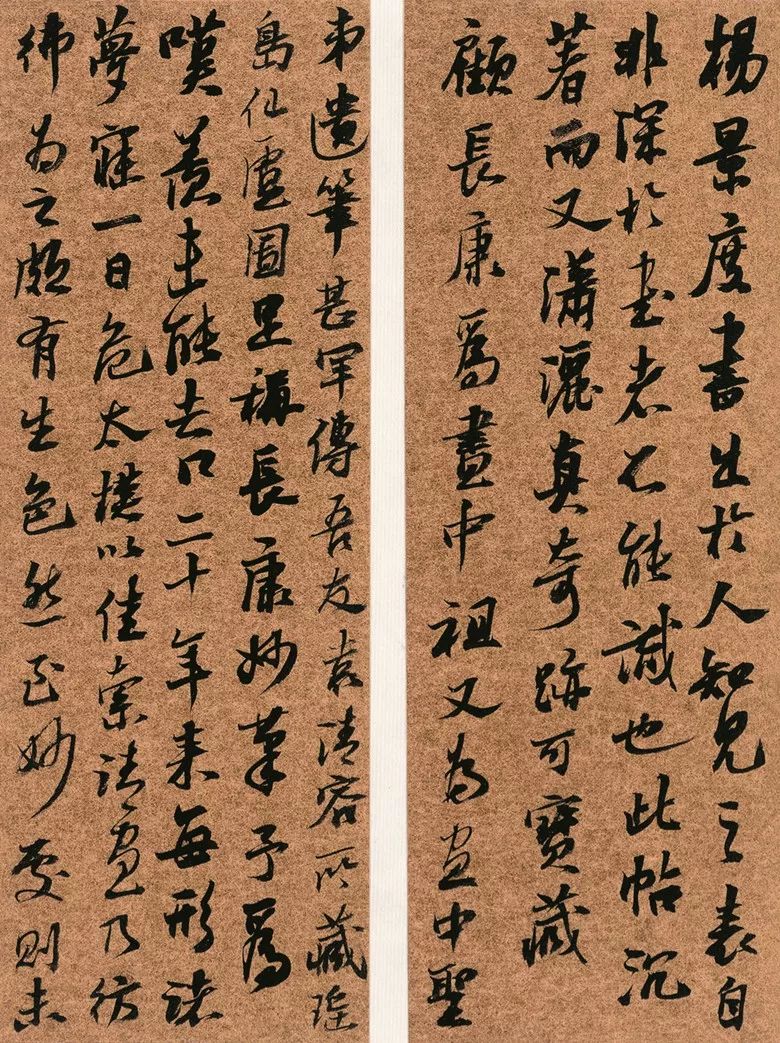 楊景度書出於人知見之表自
非深於書者不能識也此帖沉
著而又瀟灑真奇跡可寶藏
顧長康爲畫中祖又為畫中聖
弟遺筆甚罕傳吾友袁清容所藏瑤
島仙廬圖足稱長康妙筆予爲
嘆羨未能去口二十年来每形諸
夢寐一日危太樸以佳索請畫乃彷
彿为之頗有生色然至妙處則未